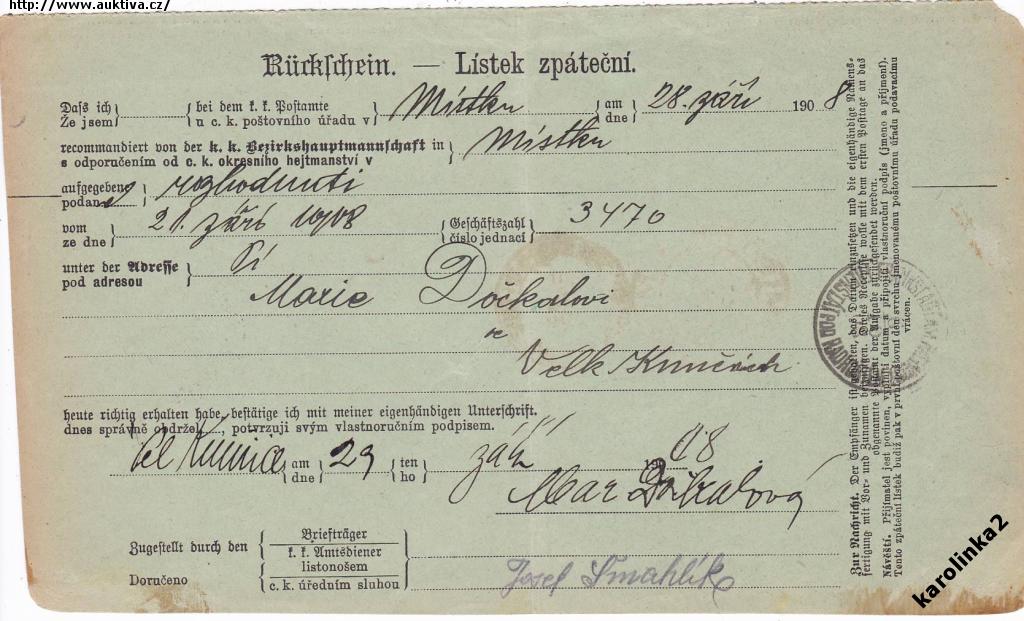 http://www.auktiva.cz/
Rückschein. — Lístek zpáteční.
Daſs ich bei dem k. k. Poſtamte Místku am 28. září 1908
Že jsem u c. k. poštovního úřadu v dne
recommandiert von der k. k. Bezirkshauptmannſchaft in Místku
s odporučením od c. k. okresního hejtmanství v
aufgegeben rozhodnutí
podané
vom 21. září 1908 Geſchäftszahl 3470
ze dne číslo jednací
unter der Adreſſe
pod adresou
Marie Dočkalovi
ve
Velk Kunčicích
heute richtig erhalten habe, beſtätige ich mit meiner eigenhändigen Unterſchrift.
dnes správně obdržel, potvrzuji svým vlastnoručním podpisem.
Vel Kunice am 29 ten září 1908
dne ho
Mar Dočkalová
Zugeſtellt durch den Briefträger
k. k. Amtsdiener
Doručeno listonošem
c. k. úředním sluhou
Josef Smahlík
Zur Nachricht. Der Empfänger iſt gehalten, das Datum einzuſetzen und die eigenhändige Namensfertigung mit Vor- und Zunamen beizufügen. Dieſes Recepiſſe wolle mit dem erſten Poſttage an das obgenannte Poſtamt der Aufgabe zurückgeſendet werden.
Návěští. Přijímatel jest povinen, vyplniti datum a připojiti vlastnoruční podpis (jmeno a příjmení).
Tento zpáteční lístek budiž pak v první poštovní den svrchu jmenovanému poštovnímu úřadu podavacímu vrácen.
karolinka2